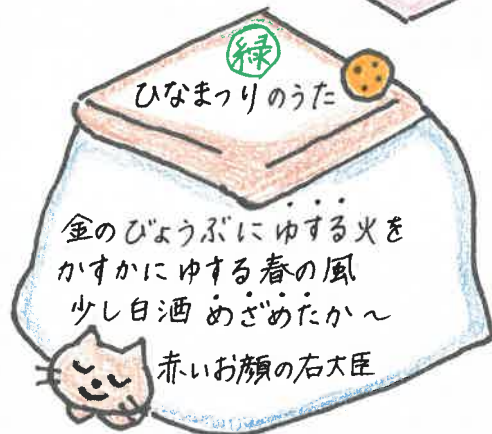 緑
ひなまつりのうた
金のびょうぶにゆする火を
かすかにゆする春の風
少し白酒めざめたか～
赤いお顔の右大臣